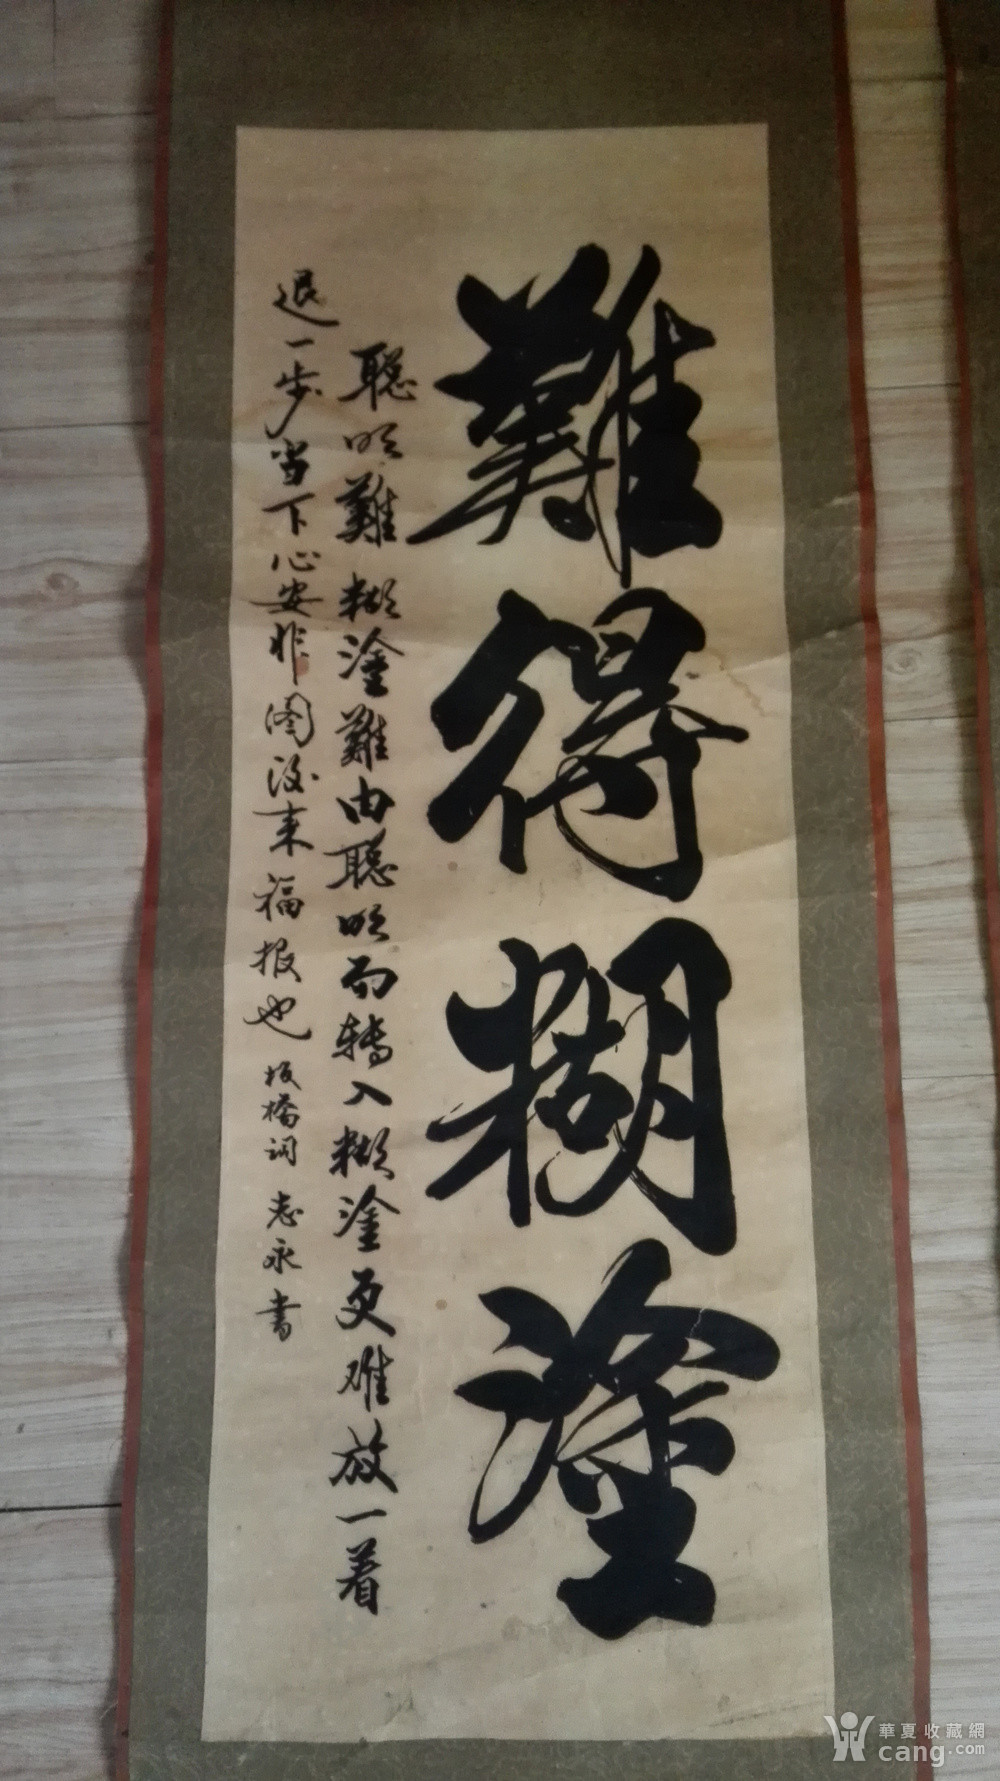 難得糊塗
聪明難糊塗難由聪明而转入糊塗更难放一着
退一步当下心安非图后来福报也板橋词志永書
華夏收藏網
cang.com